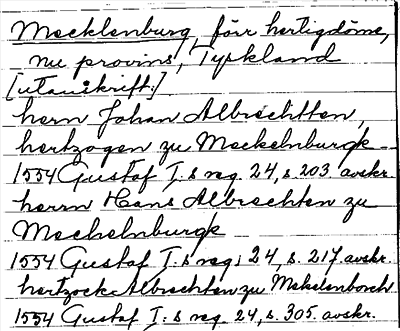 Mecklenburg, förr hertigdöme,
nu provins, Tyskland
[utanskrift:]
hern Johan Albrechtten,
hertzogen zu Meckelnburgk
1554 Gustaf I:s reg. 24, s. 203 avskr.
herrn Hans Albrechten zu
Mechelnburgk
1554 Gustaf I:s reg. 24, s. 217. avskr.
hertzock Albrechten zu Mekelenborch
1554 Gustaf I:s reg. 24, s. 305. avskr.